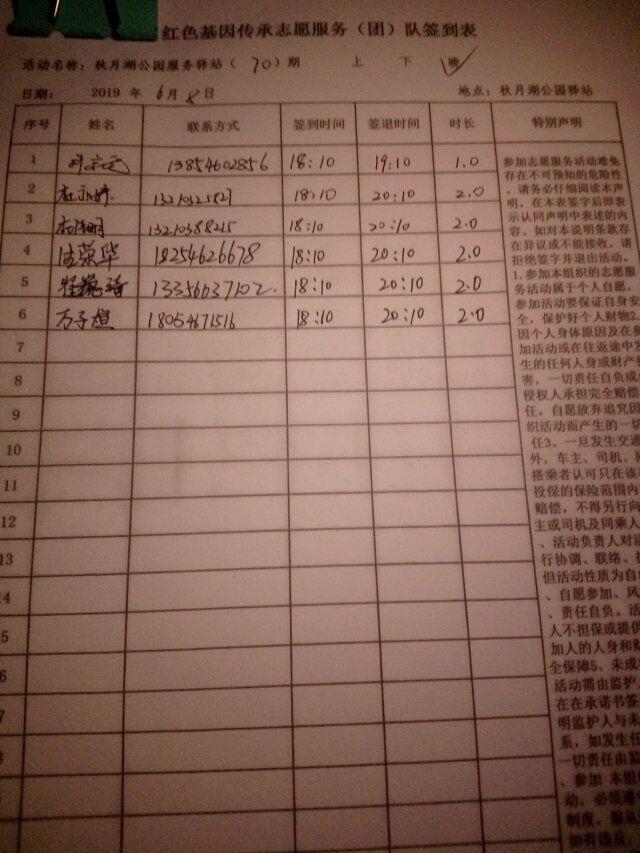 红色基因传承志愿服务（团）队签到表
活动名称：秋月湖公园服务驿站（70）期 上 下 晚
日期： 2019 年 6 月 8 日 地点：秋月湖公园驿站
序号 姓名 联系方式 签到时间 签退时间 时长 特别声明
1 13854602856 18:10 19:10 1.0
2 18:10 20:10 2.0
3 13210388215 18:10 20:10 2.0
4 伍荣华 18254626678 18:10 20:10 2.0
5 13356037102 18:10 20:10 2.0
6 万子恒 18054671516 18:10 20:10 2.0
7
8
9
10
11
12
13
4
5
6
7
参加志愿服务活动难免
存在不可预知的危险性
，请务必仔细阅读本声
明，在本表签字后即表
示认同声明中表述的内
容。如对本说明条款存
在异议或不能接收，请
拒绝签字并退出活动。
1.参加本组织的志愿服
务活动属于个人自愿，
参加活动要保证自身安
全，保护好个人财物2.
因个人身体原因及在参
加活动或在往返途中发
生的任何人身或财产损
害，一切责任自负或
侵权人承担完全赔偿
任，自愿放弃追究因
织活动而产生的一切
任3、一旦发生交通
外，车主、司机、同
搭乘者认可只在该
投保的保险范围内
赔偿，不得另行向
主或司机及同乘人
、活动负责人对活
行协调、联络、
但活动性质为自
、自愿参加、风
、责任自负。活
人不担保或提供
加人的人身和财
全保障5、未成
活动需由监护
在在承诺书签
明监护人与未
系，如发生任
一切责任由监
、参加 本组
动，必须遵
制度，服从
如有违反，